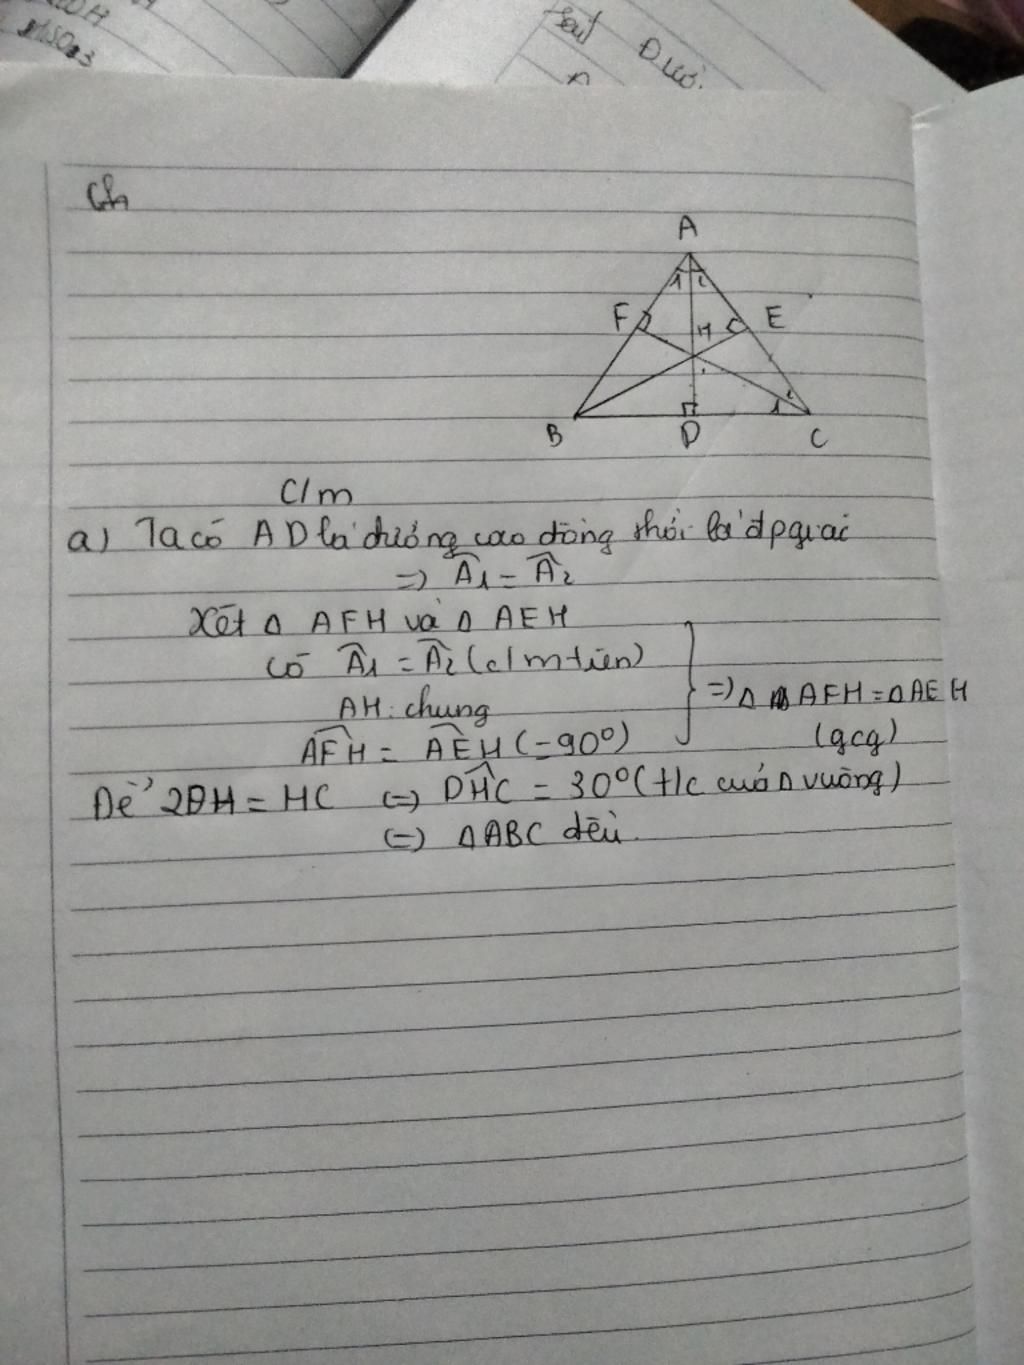 Sau
Đườ
Gh
A
1 2
F H E
2
1
B D C
C/m
a) Ta có AD là đường cao đồng thời là đpgiác
=> Â1 = Â2
Xét Δ AFH và Δ AEH
có Â1 = Â2 (c/m trên)
AH: chung => Δ AFH = ΔAEH
AFH = AEH (=90°) (gcg)
Để 2DH = HC <=> DHC = 30° (t/c của Δ vuông)
<=> ΔABC đều.